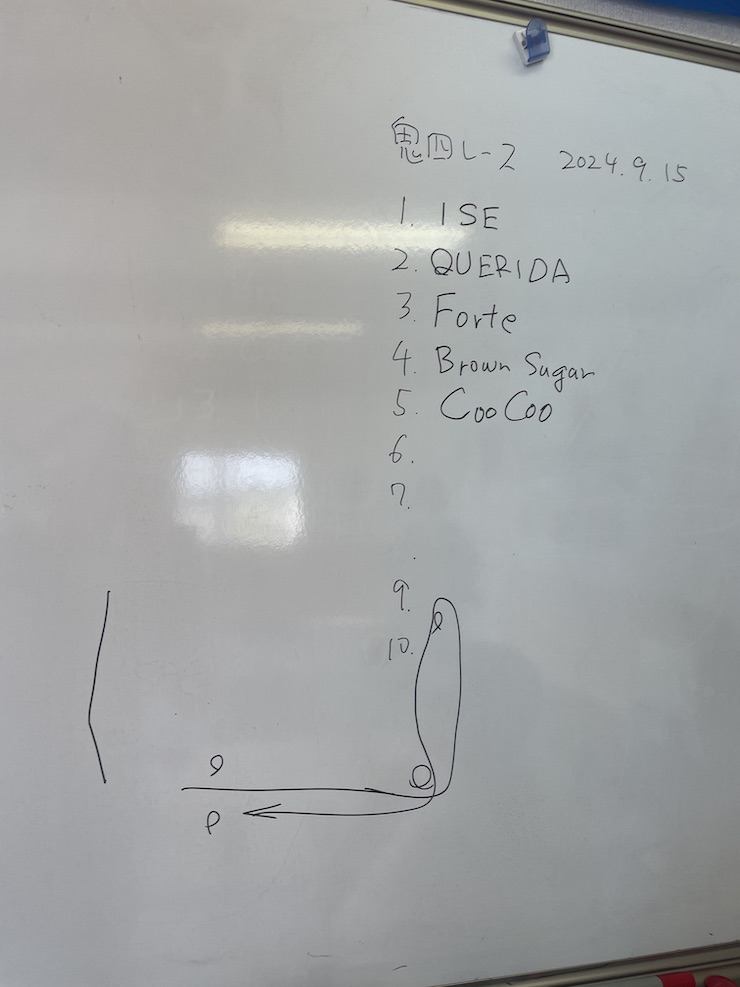 鬼四レース 2024.9.15
1. ISE
2. QUERIDA
3. Forte
4. Brown Sugar
5. CooCoo
6.
7.
.
9.
10.